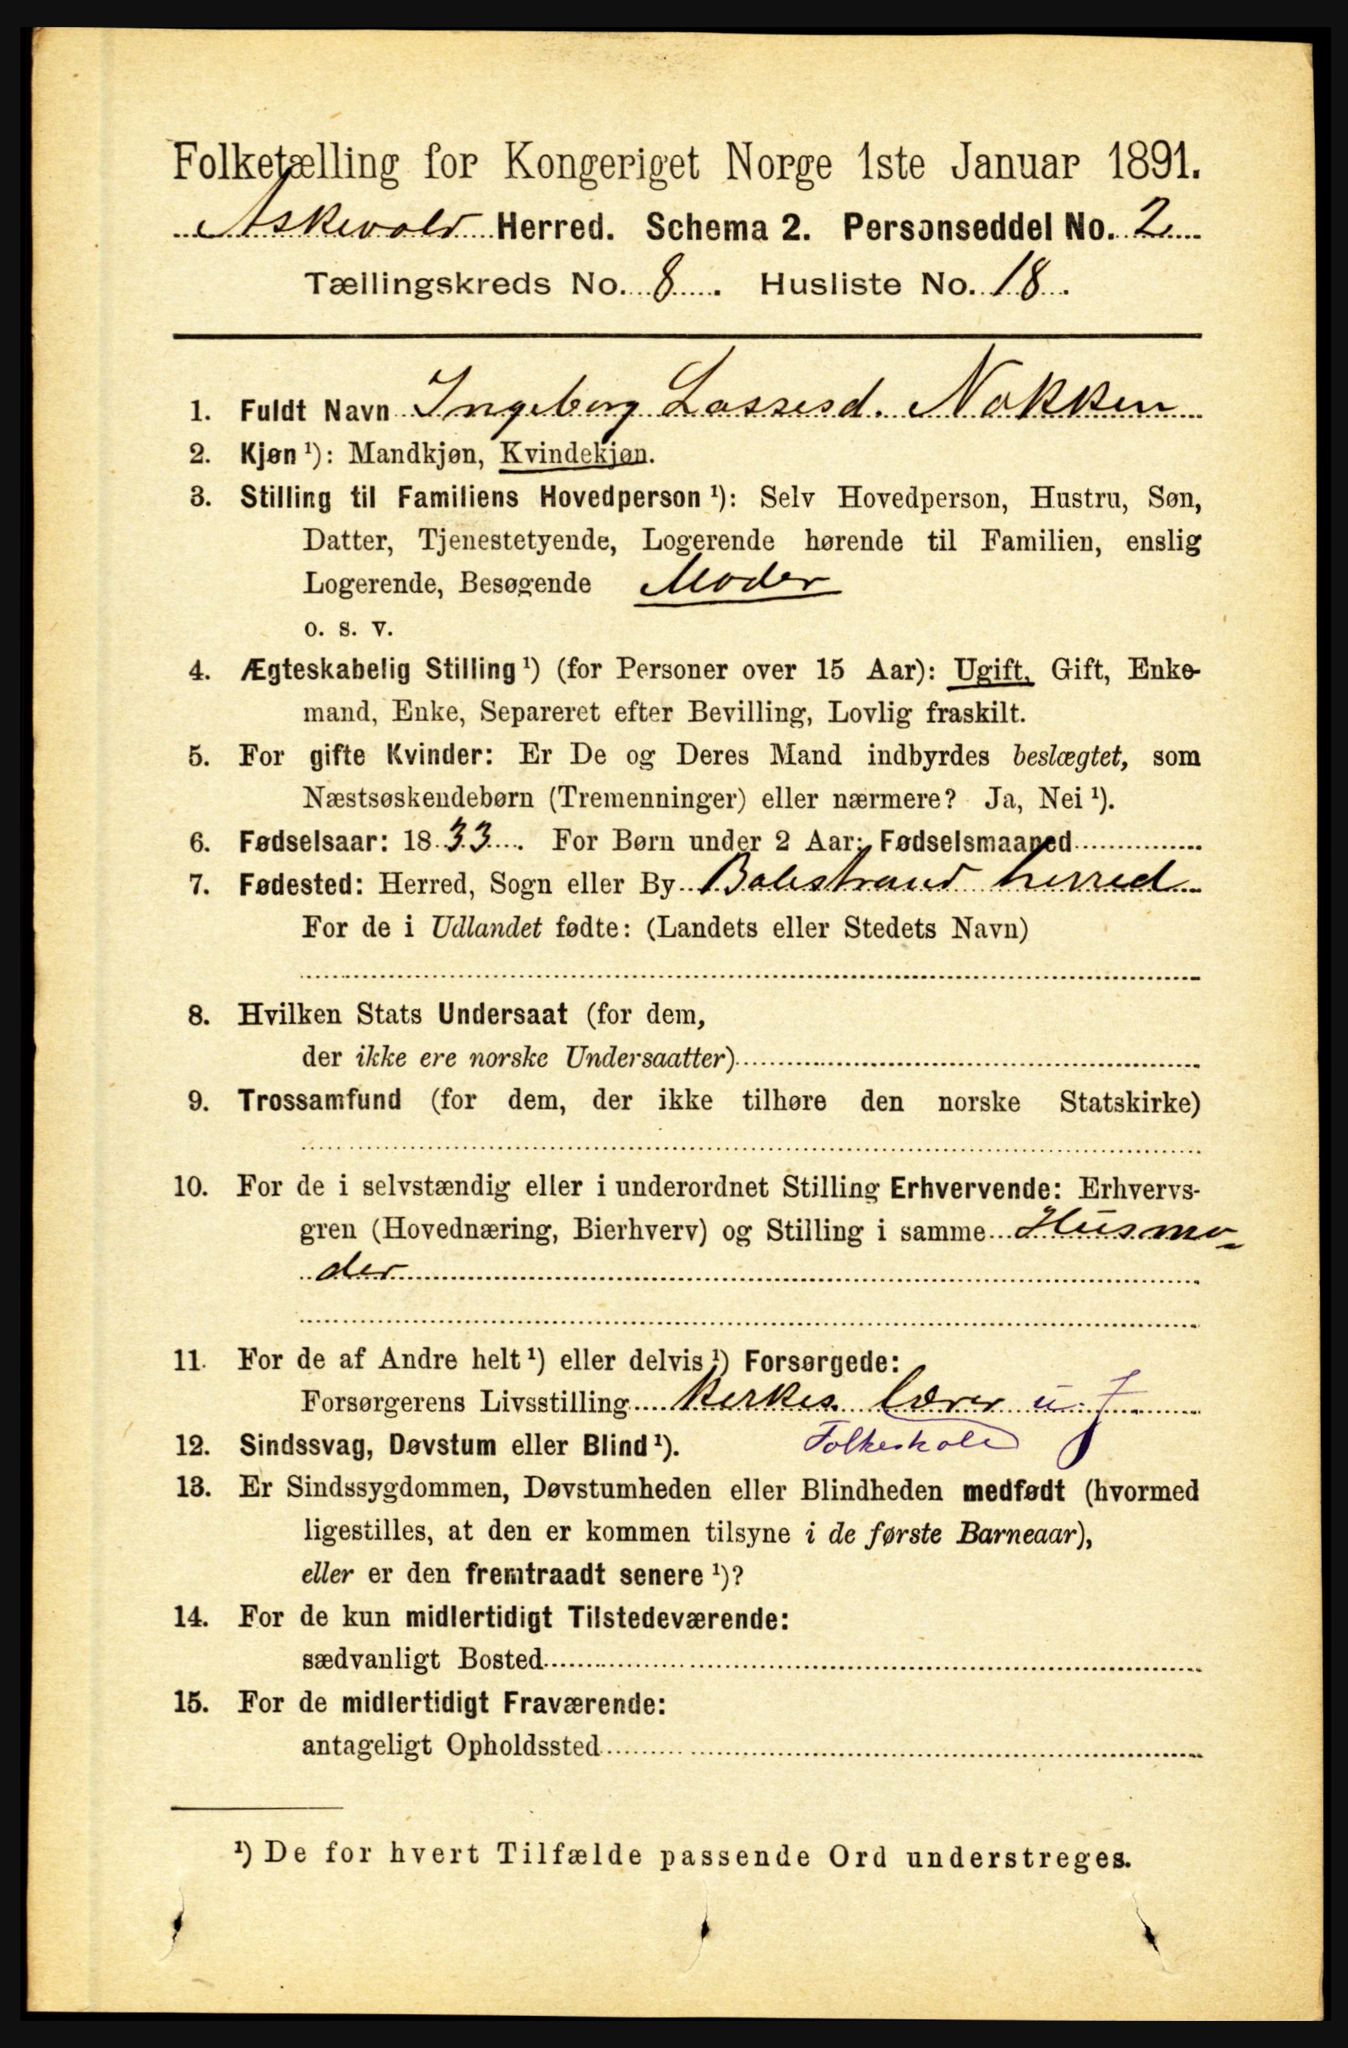 Folketælling for Kongeriget Norge 1ste Januar 1891.
Askevold Herred. Schema 2. Personseddel No. 2
Tællingskreds No. 8. Husliste No. 18.
1. Fuldt Navn Ingeborg Lassesd. Nokken
2. Kjøn ¹): Mandkjøn, Kvindekjøn.
3. Stilling til Familiens Hovedperson ¹): Selv Hovedperson, Hustru, Søn,
Datter, Tjenestetyende, Logerende hørende til Familien, enslig
Logerende, Besøgende Moder
o. s. v.
4. Ægteskabelig Stilling ¹) (for Personer over 15 Aar): Ugift, Gift, Enke-
mand, Enke, Separeret efter Bevilling, Lovlig fraskilt.
5. For gifte Kvinder: Er De og Deres Mand indbyrdes beslægtet, som
Næstsøskendebørn (Tremenninger) eller nærmere? Ja, Nei ¹).
6. Fødselsaar: 1833. For Børn under 2 Aar: Fødselsmaaned
7. Fødested: Herred, Sogn eller By Balestrand herred
For de i Udlandet fødte: (Landets eller Stedets Navn)
8. Hvilken Stats Undersaat (for dem,
der ikke ere norske Undersaatter)
9. Trossamfund (for dem, der ikke tilhøre den norske Statskirke)
10. For de i selvstændig eller i underordnet Stilling Erhvervende: Erhvervs-
gren (Hovednæring, Bierhverv) og Stilling i samme Husmo-
der
11. For de af Andre helt ¹) eller delvis ¹) Forsørgede:
Forsørgerens Livsstilling Kirkes. lærer
12. Sindssvag, Døvstum eller Blind ¹). Folkeskole
13. Er Sindssygdommen, Døvstumheden eller Blindheden medfødt (hvormed
ligestilles, at den er kommen tilsyne i de første Barneaar),
eller er den fremtraadt senere ¹)?
14. For de kun midlertidigt Tilstedeværende:
sædvanligt Bosted
15. For de midlertidigt Fraværende:
antageligt Opholdssted
¹) De for hvert Tilfælde passende Ord understreges.